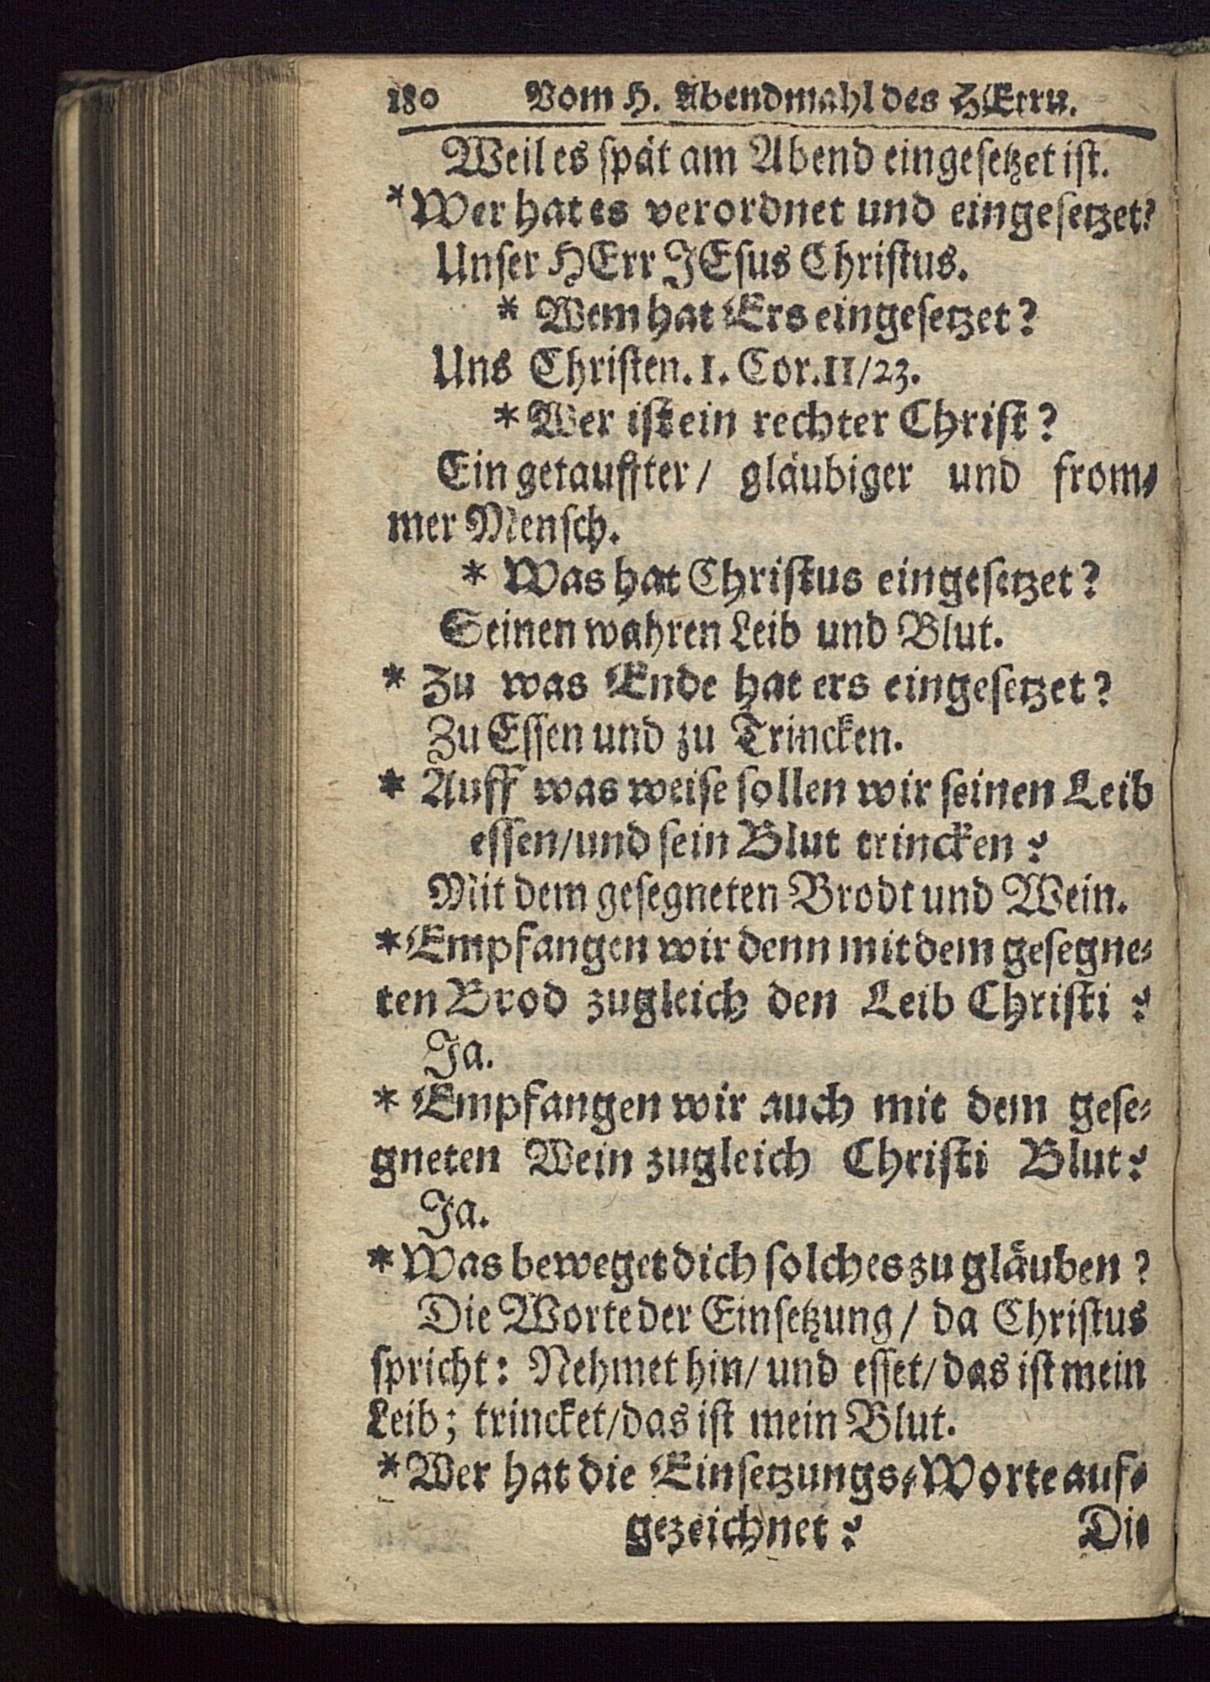 180 Vom H. Abendmahl des HErrn.
Weil es spät am Abend eingesetzet ist.
* Wer hat es verordnet und eingesetzet?
Unser HErr JEsus Christus.
* Wem hat Ers eingesetzet?
Uns Christen. 1. Cor. 11/23.
* Wer ist ein rechter Christ?
Ein getauffter/ gläubiger und from-
mer Mensch.
* Was hat Christus eingesetzet?
Seinen wahren Leib und Blut.
* Zu was Ende hat ers eingesetzet?
Zu Essen und zu Trincken.
* Auff was weise sollen wir seinen Leib
essen/und sein Blut trincken?
Mit dem gesegneten Brodt und Wein.
* Empfangen wir denn mit dem gesegne-
ten Brod zugleich den Leib Christi?
Ja.
* Empfangen wir auch mit dem gese-
gneten Wein zugleich Christi Blut?
Ja.
* Was beweget dich solches zu gläuben?
Die Worte der Einsetzung/ da Christus
spricht: Nehmet hin/ und esset/ das ist mein
Leib; trincket/das ist mein Blut.
* Wer hat die Einsetzungs-Worte auf-
gezeichnet? Die